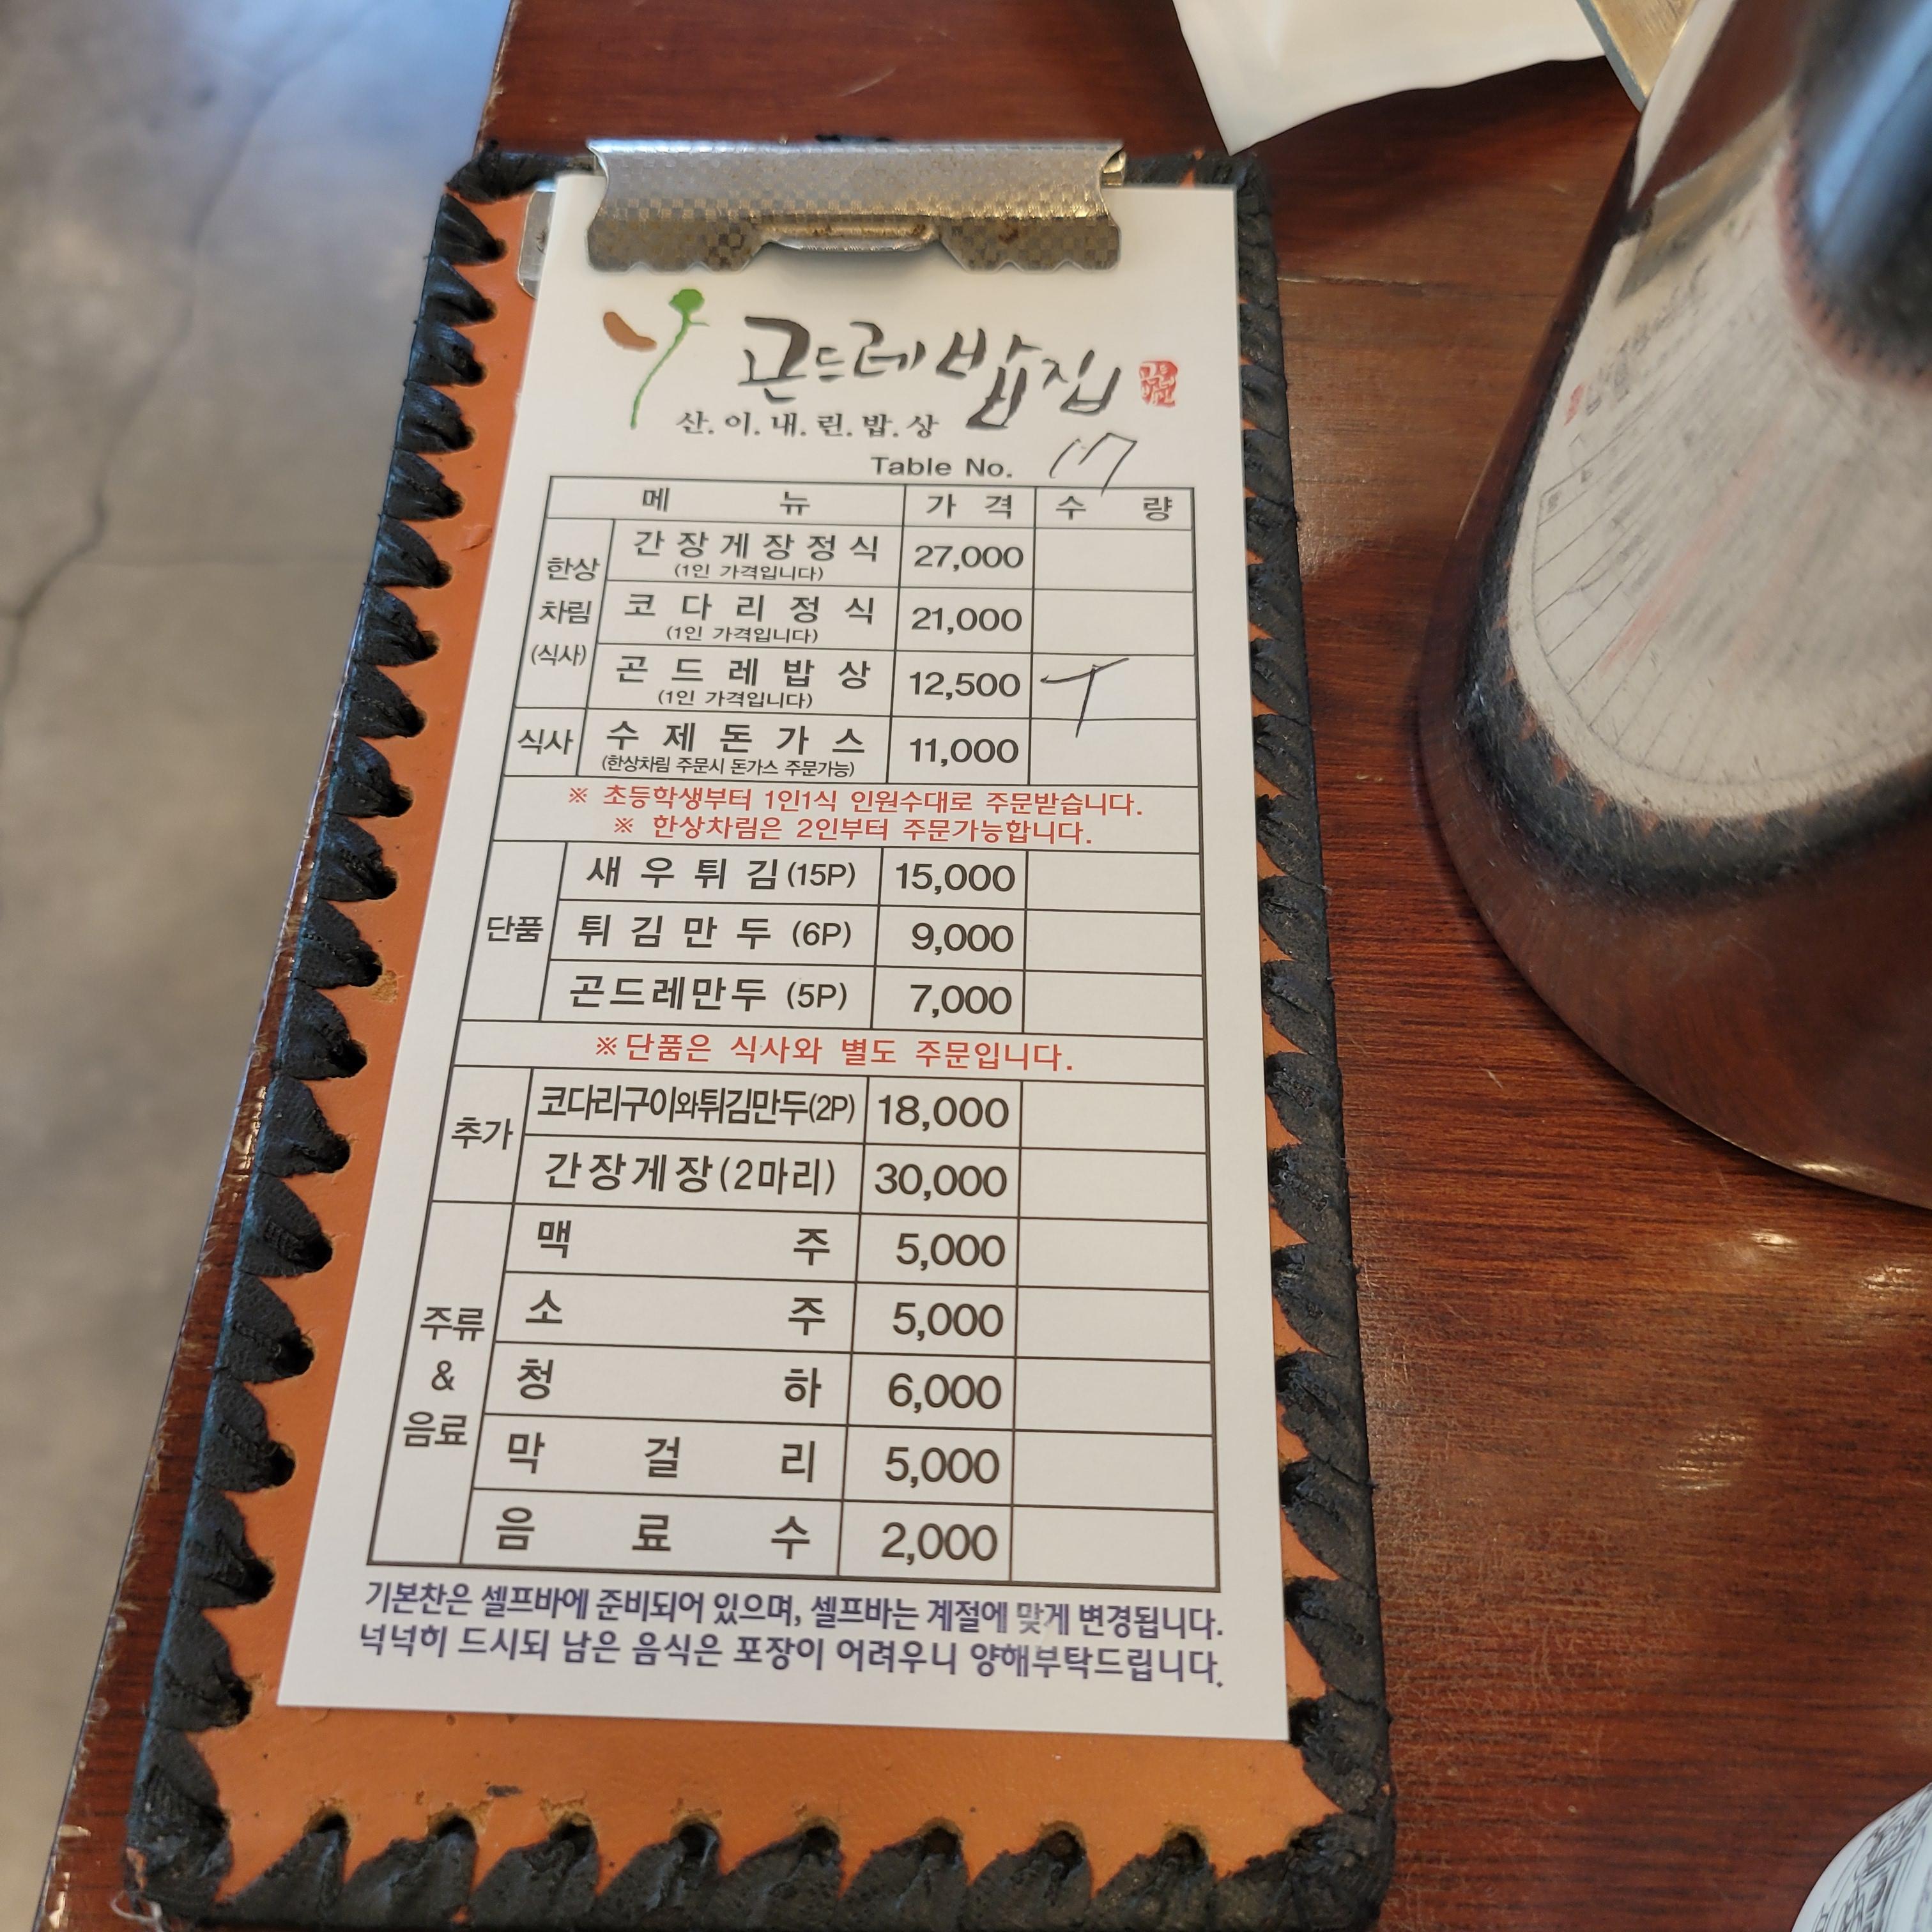 곤드레밥집
산.이.내.린.밥.상
Table No. 17
메뉴 가격 수량
한상차림 (식사)
간장게장정식 27,000
(1인 가격입니다)
코다리정식 21,000
(1인 가격입니다)
곤드레밥상 12,500 丅
(1인 가격입니다)
식사 수제돈가스 11,000
(한상차림 주문시 돈가스 주문가능)
※ 초등학생부터 1인1식 인원수대로 주문받습니다.
※ 한상차림은 2인부터 주문가능합니다.
단품
새우튀김(15P) 15,000
튀김만두 (6P) 9,000
곤드레만두 (5P) 7,000
※단품은 식사와 별도 주문입니다.
추가
코다리구이와튀김만두(2P) 18,000
간장게장(2마리) 30,000
주류 & 음료
맥주 5,000
소주 5,000
청하 6,000
막걸리 5,000
음료수 2,000
기본찬은 셀프바에 준비되어 있으며, 셀프바는 계절에 맞게 변경됩니다.
넉넉히 드시되 남은 음식은 포장이 어려우니 양해부탁드립니다.